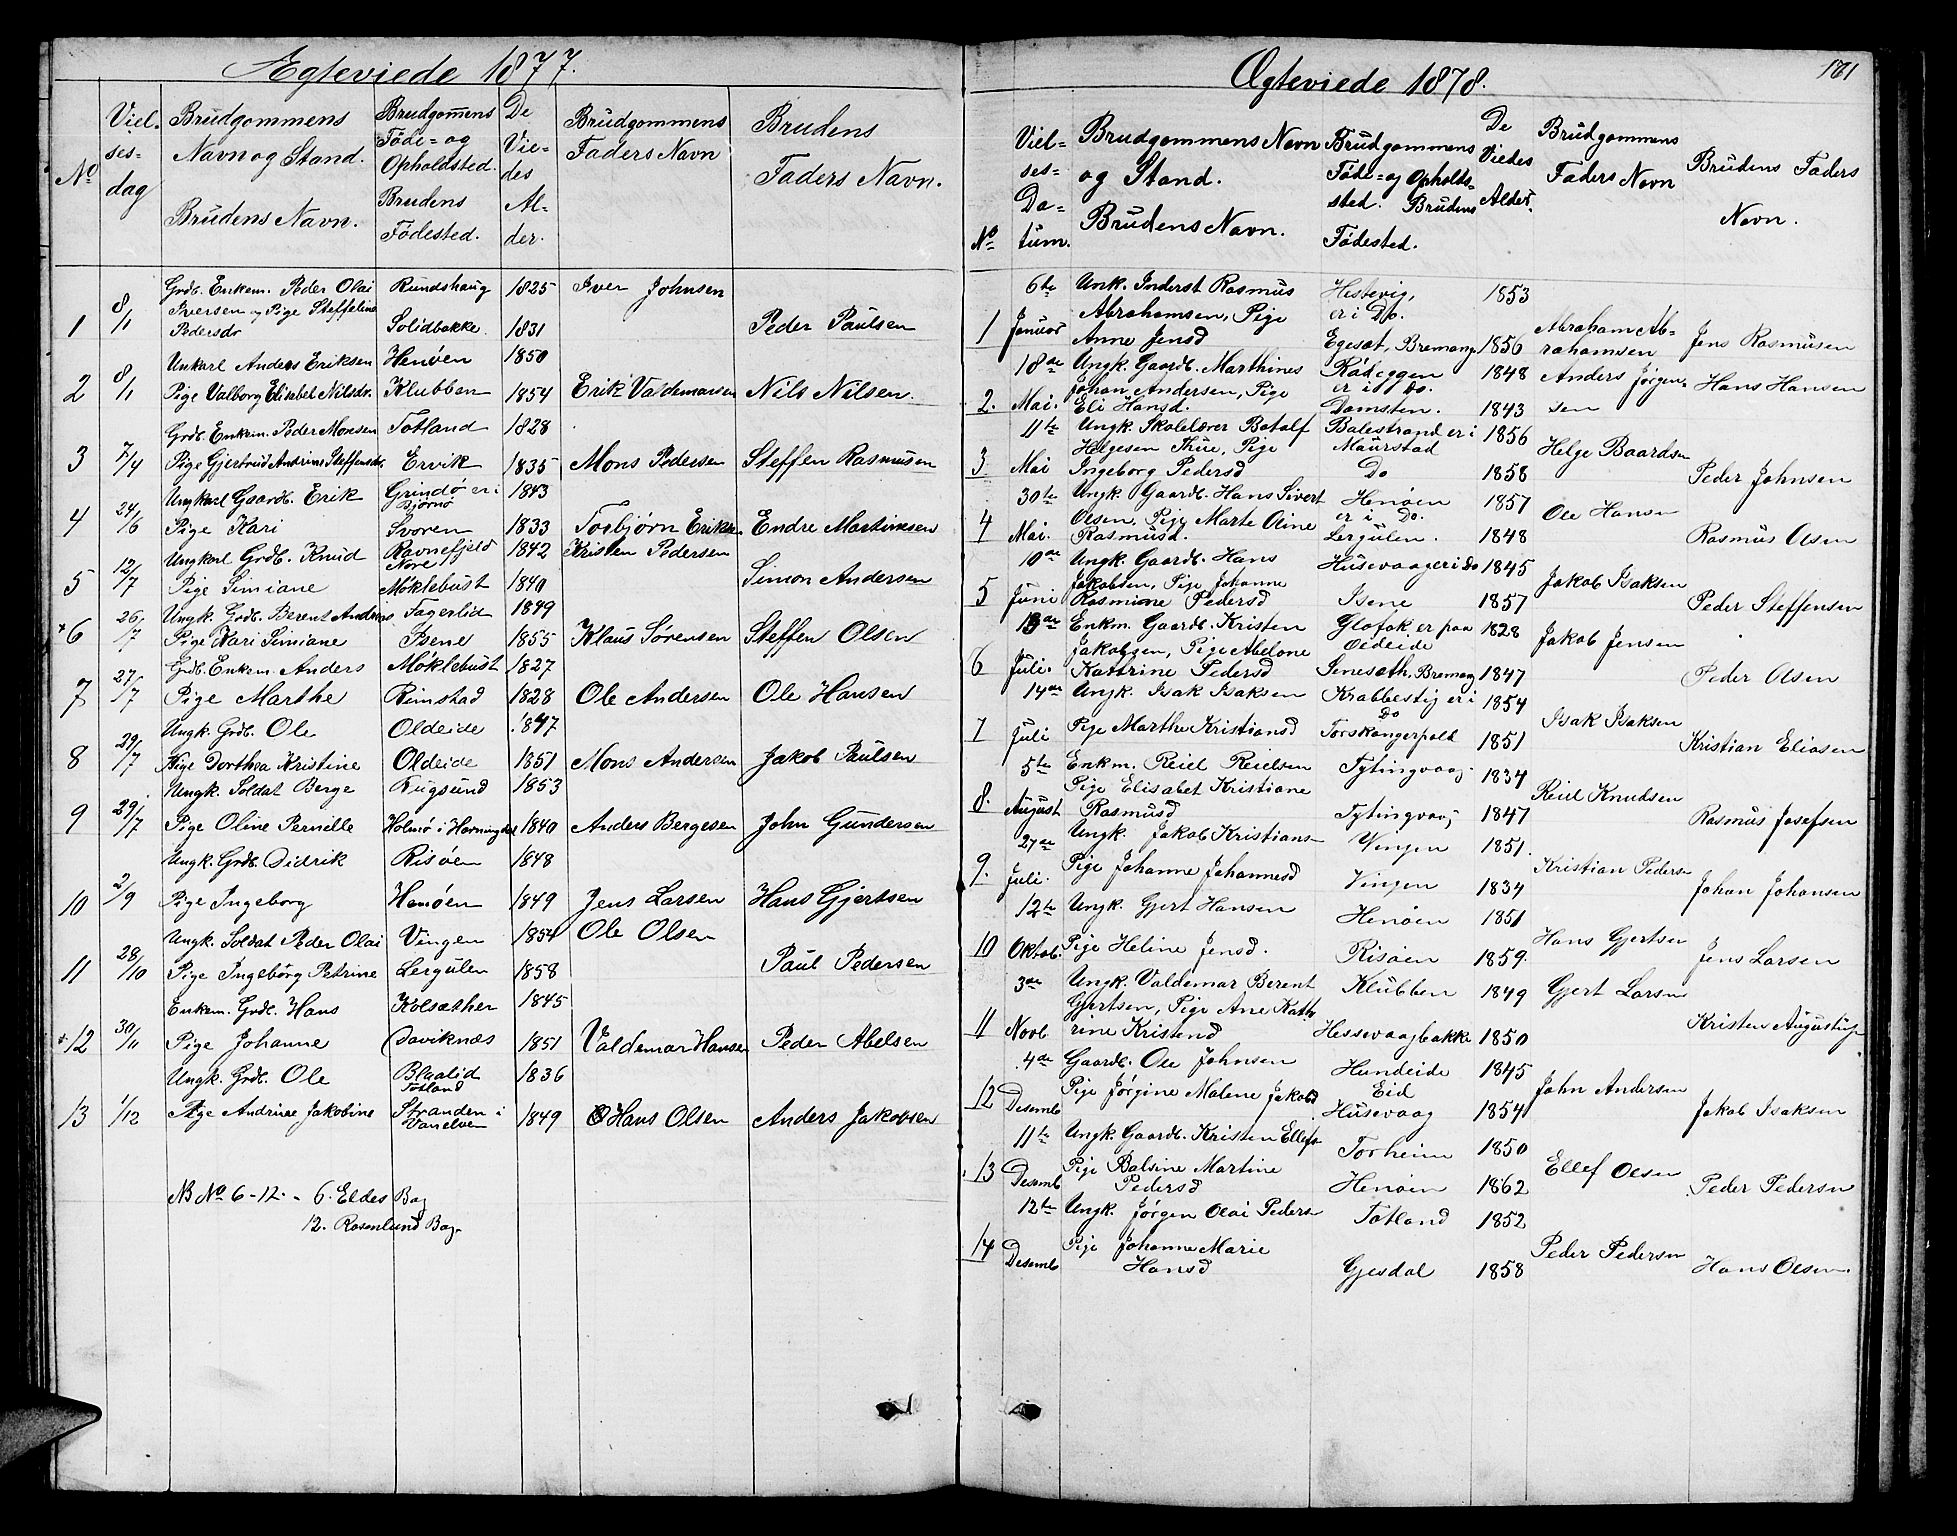 Ægteviede 1877.
No
Viel-
ses-
dag
Brudgommens
Navn og Stand.
Brudens Navn.
Brudgoms
Føde- og
Opholdsted.
Brudens
Fødested.
De
Vie-
des
Al-
der.
Brudgommens
Faders Navn
Brudens
Faders Navn.
Grdb. Enkem. Peder Olai Rundshaug 1825 Iver Johnsen
1 8/1 Iversen og Pige Steffeline
Pedersdr Solidbakke 1831 Peder Paulsen
Unkarl Anders Eriksen Henøen 1850
2 8/1 Pige Valborg Elisabet Nilsdr. Klubben 1854 Erik Valdemarsen Nils Nilsen.
Grdb. Enkem. Peder Monsen Totland 1828
3 2/4 Pige Gjertrud Andrine Steffensdr. Ervik 1835 Mons Pedersen Steffen Rasmusen
Ungkarl Gaardb. Erik Grindø er i Bjørnø 1843
4 24/6 Pige Kari Svoren 1833 Torbjørn Eriksen Endre Martinsen
Ungkarl Grdb. Knud Ravnefjeld Nore 1842 Kristen Pedersen
5 12/7 Pige Simiane Møklebust 1840 Simon Andersen
Ungk. Grdb. Berent Andreas Fagerlid 1849
+6 26/7 Pige Kari Simiane Isene 1855 Klaus Sørensen Steffen Olsen
Grdb. Enkem. Anders Møklebust 1827
7 27/7 Pige Marthe Rimstad 1828 Ole Andersen Ole Hansen
Ungk. Grdb. Ole Oldeide 1847
8 29/7 Pige Dorthea Kristine Oldeide 1851 Mons Andersen Jakob Paulsen
Ungk. Soldat Berge Rugsund 1853
9 29/7 Pige Oline Pernille Holmø i Horningdal 1840 Anders Bergesen John Gundersen
Ungk. Grdb. Didrik Risøen 1848
10 2/9 Pige Ingeborg Henøen 1849 Jens Larsen Hans Gjertsen
Ungk. Soldat Peder Olai Vingen 1854 Ole Olsen
11 28/10 Pige Ingeborg Petrine Lergulen 1858 Paul Pedersen
Enkem. Grdb. Hans Kolsæther 1845
+12 30/11 Pige Johanne Daviknæs 1851 Valdemar Hansen Peder Abelsen
Ungk. Grdb. Ole Blaalid Totland 1836
13 1/12 Pige Andrine Jakobine Stranden i Vanelven 1849 Hans Olsen Anders Jakobsen
NB No 6-12. - 6. Eldes Bag
12. Rosenlund Bag.
Ægteviede 1878.
181
No
Viel-
ses-
Da-
tum.
Brudgommens Navn
og Stand.
Brudens Navn.
Brudgommens
Føde- og Opholds-
sted. Brudens
Fødested.
De
Viedes
Alder.
Brudgommens
Faders Navn
Brudens Faders
Navn.
6te Unk. Inderst Rasmus Hestevig, 1853
Abrahamsen, Pige er i Do. Abraham Ab-
1 Januar Anne Jensd Egesæt, Bremang. 1856 rahamsen Jens Rasmusen
18de Ungk. Gaardb. Marthines Rødeggen 1848 Anders Jørgen-
Johan Andersen, Pige er i Do. Hans Hansen
2. Mai. Eli Hansd. Domsten. 1843 sen
11te Ungk. Skolelærer Botolf Balestrand er i 1856
Helgesen Thue, Pige Maurstad Helge Baardsen
3 Mai Ingeborg Pedersd Do 1858 Peder Johnsen
30te Ungk. Gaardb. Hans Sivert Henøen 1857
Olsen, Pige Marte Oline er i Do. Ole Hansen
4 Mai. Rasmusd. Lergulen. 1848 Rasmus Olsen
10de Ungk. Gaardb. Hans Husevaag er i Do 1845
Jakobsen, Pige Johanne Jakob Isaksen
5 Juni Rasmine Pedersd Isene 1857 Peder Steffensen
13de Enkm. Gaardb. Kristen Glofok er paa 1828
Jakobsen, Pige Abelone Oldeide Jakob Jensen
6 Juli. Kathrine Pedersd Senesæth, Bremang 1847 Peder Olsen
14de Ungk. Isak Isaksen Krabbestig er i Do 1854 Isak Isaksen
7 Juli Pige Marthe Kristiansd Torskangerpold 1851 Kristian Eliasen
5te Enkm. Reiel Reielsen Tytingvaag 1834
Pige Elisabet Kristiane Reiel Knudsen
8. August Rasmusd Tytingvaag 1847 Rasmus Josefsen
27de Ungk. Jakob Kristians- Vingen 1851.
9. Juli. Pige Johanne Johannesd Vingen 1834 Kristian Pedersen Johan Johansen
12te Ungk. Gjert Hansen Henøen 1851
10 Oktob. Pige Heline Jensd. Risøen 1859 Hans Gjertsen Jens Larsen
3de Ungk. Valdemar Berent Klubben 1849 Gjert Larsen
Gjertsen, Pige Ane Kath-
11 Novb rine Kristensd Hessevaagbakke 1850 Kristen Augustins
4de Gaardb. Ole Johnsen Hundeide Eid 1845
12 Desemb Pige Jørgine Malene Jakobd Husevaag 1854 John Andersen Jakob Isaksen
11te Ungk. Gaardb. Kristen Ellefs- Torheim 1850
13 Desemb Pige Balsine Martine
Pedersd Henøen 1862 Ellef Olsen Peder Pedersen
12te Ungk. Jørgen Olai Peders- Totland 1852
14 Desemb Pige Johanne Marie
Hansd Gjesdal 1858 Peder Pedersen Hans Olsen.